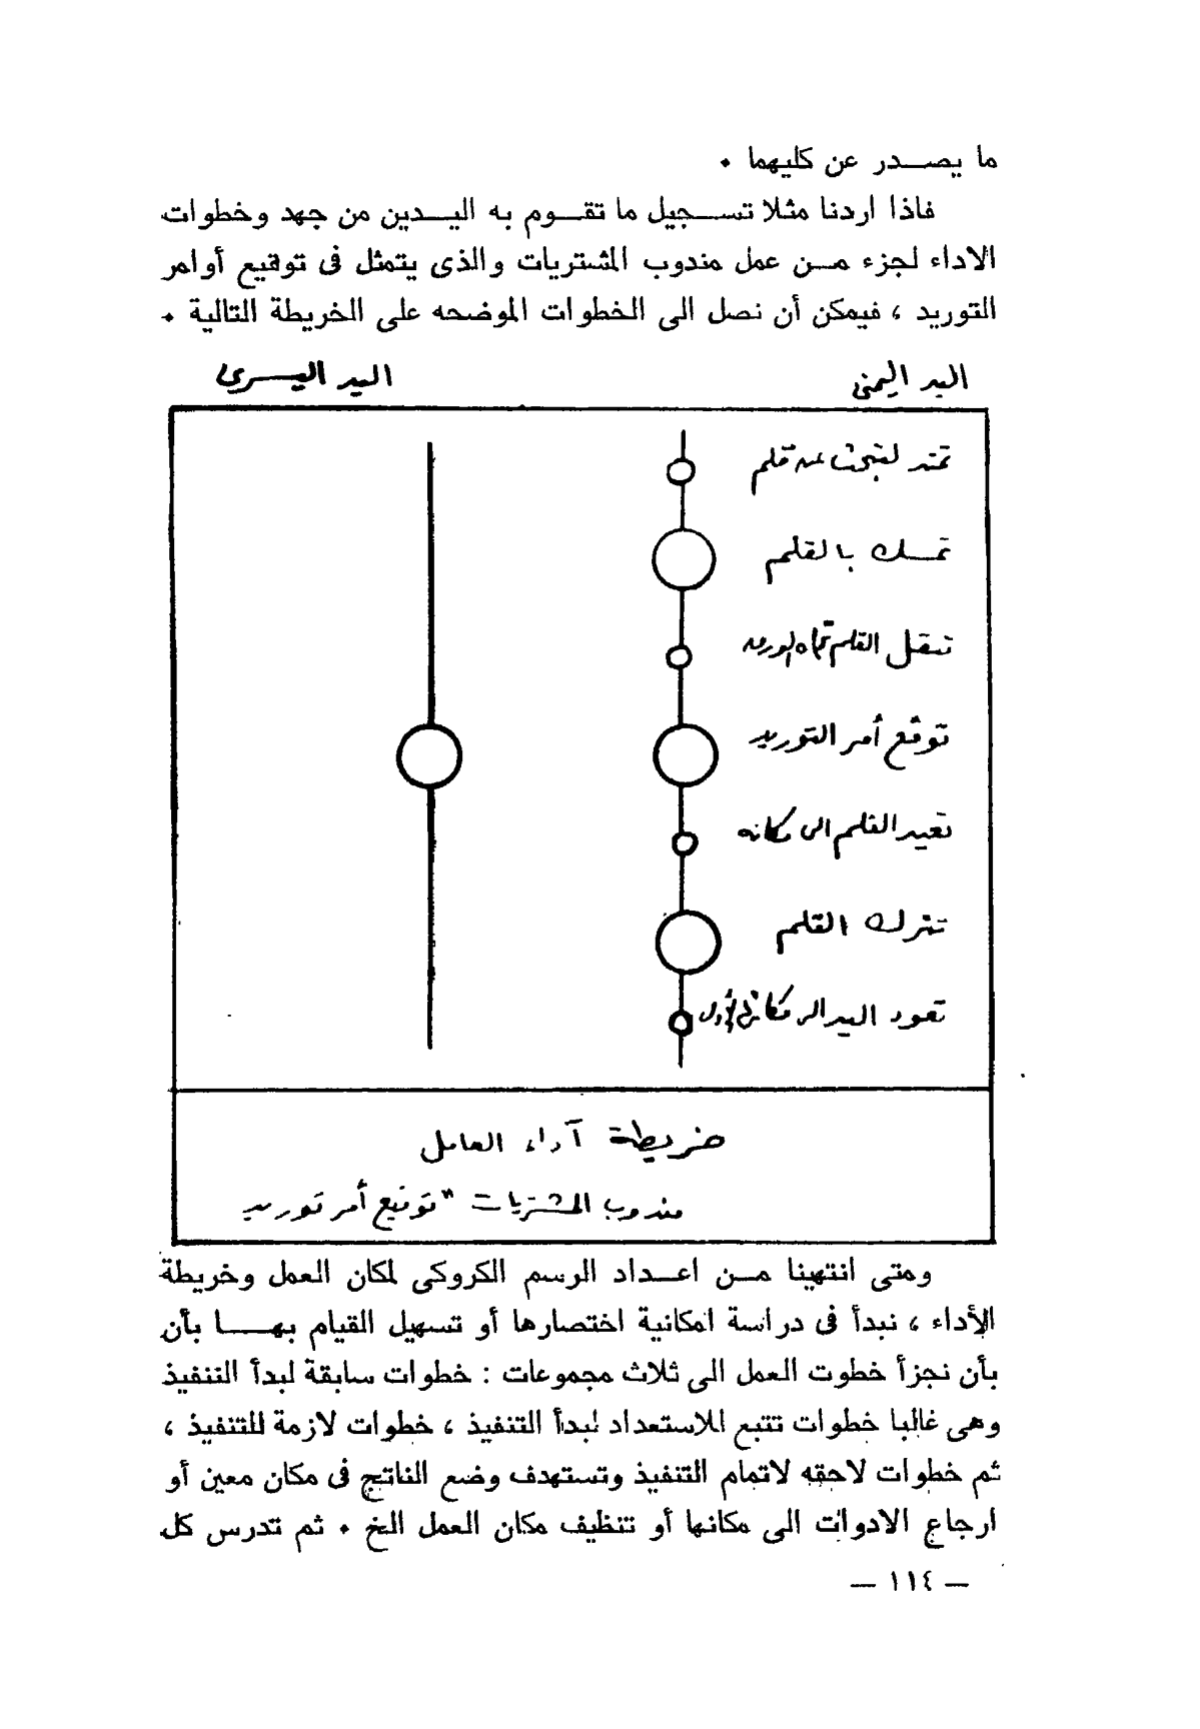 ما يصـدر عن كليهما .
فاذا اردنا مثلا تسـجيل ما تقـوم به اليـدين من جهد وخطوات
الاداء لجزء مـن عمل مندوب المشتريات والذى يتمثل فى توقيع أوامر
التوريد ، فيمكن أن نصل الى الخطوات الموضحه على الخريطة التالية .
اليد اليمنى
اليد اليسرى
تمتد لتبحث عن قلم
تمسك بالقلم
تنقل القلم تجاه الورق
توقع أمر التوريد
تعيد القلم الى مكانه
تترك القلم
تعود اليد الى مكانها الأول
خريطة آداء العامل
مندوب المشتريات " توقيع أمر توريد
ومتى انتهينا مـن اعـداد الرسم الكروكى لمكان العمل وخريطة
الأداء ، نبدأ فى دراسة امكانية اختصارها أو تسهيل القيام بهـا بأن
بأن نجزأ خطوت العمل الى ثلاث مجموعات : خطوات سابقة لبدأ التنفيذ
وهى غالبا خطوات تتبع للاستعداد لبدأ التنفيذ ، خطوات لازمة للتنفيذ ،
ثم خطوات لاحقه لاتمام التنفيذ وتستهدف وضع الناتج فى مكان معين أو
ارجاع الادوات الى مكانها أو تنظيف مكان العمل الخ . ثم تدرس كل
— ١١٤ —